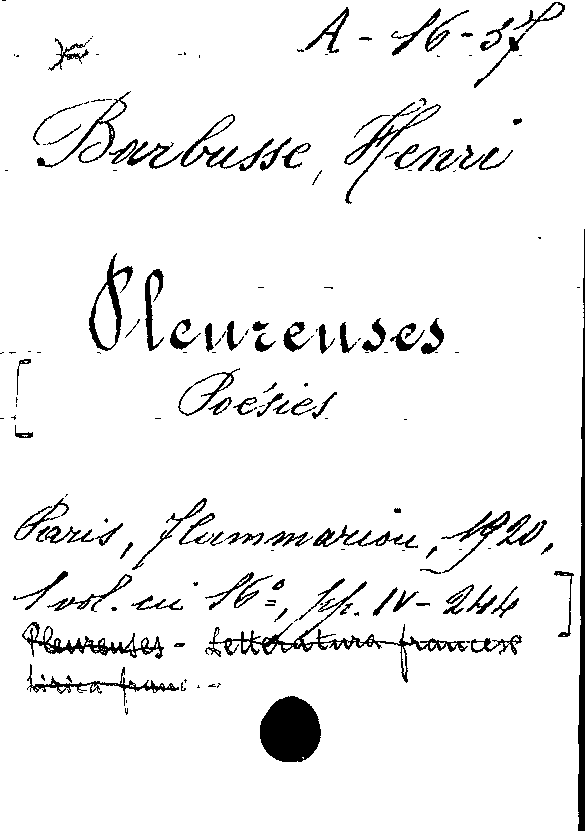 A - 16 - 37
Barbusse, Henri
Pleureuses
Poésies
Paris, Flammarion, 1920,
1 vol. in 16°, pp. IV - 244
Pleureuses - Letteratura francese
Lirica franc. -